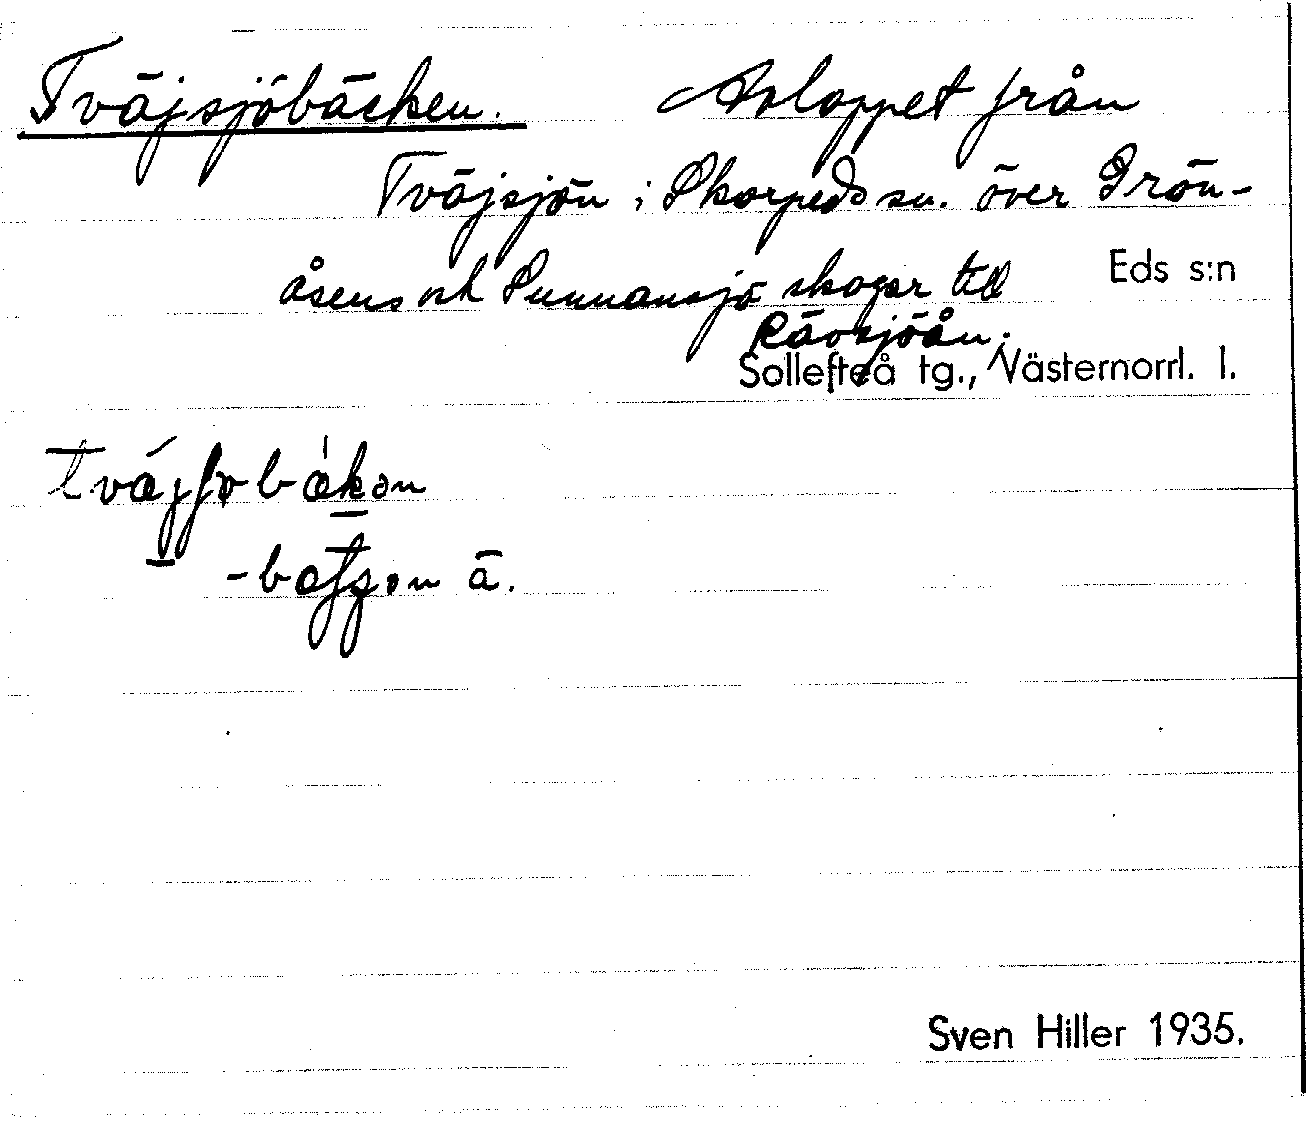 Tväjsjöbäcken. Avloppet från
Tväjsjön i Skorpeds sn. över Grön-
åsens och Sunnansjö skogar till
Rävsjöån.
Eds s:n
Sollefteå tg., Västernorrl. l.
-
ä.
Sven Hiller 1935.